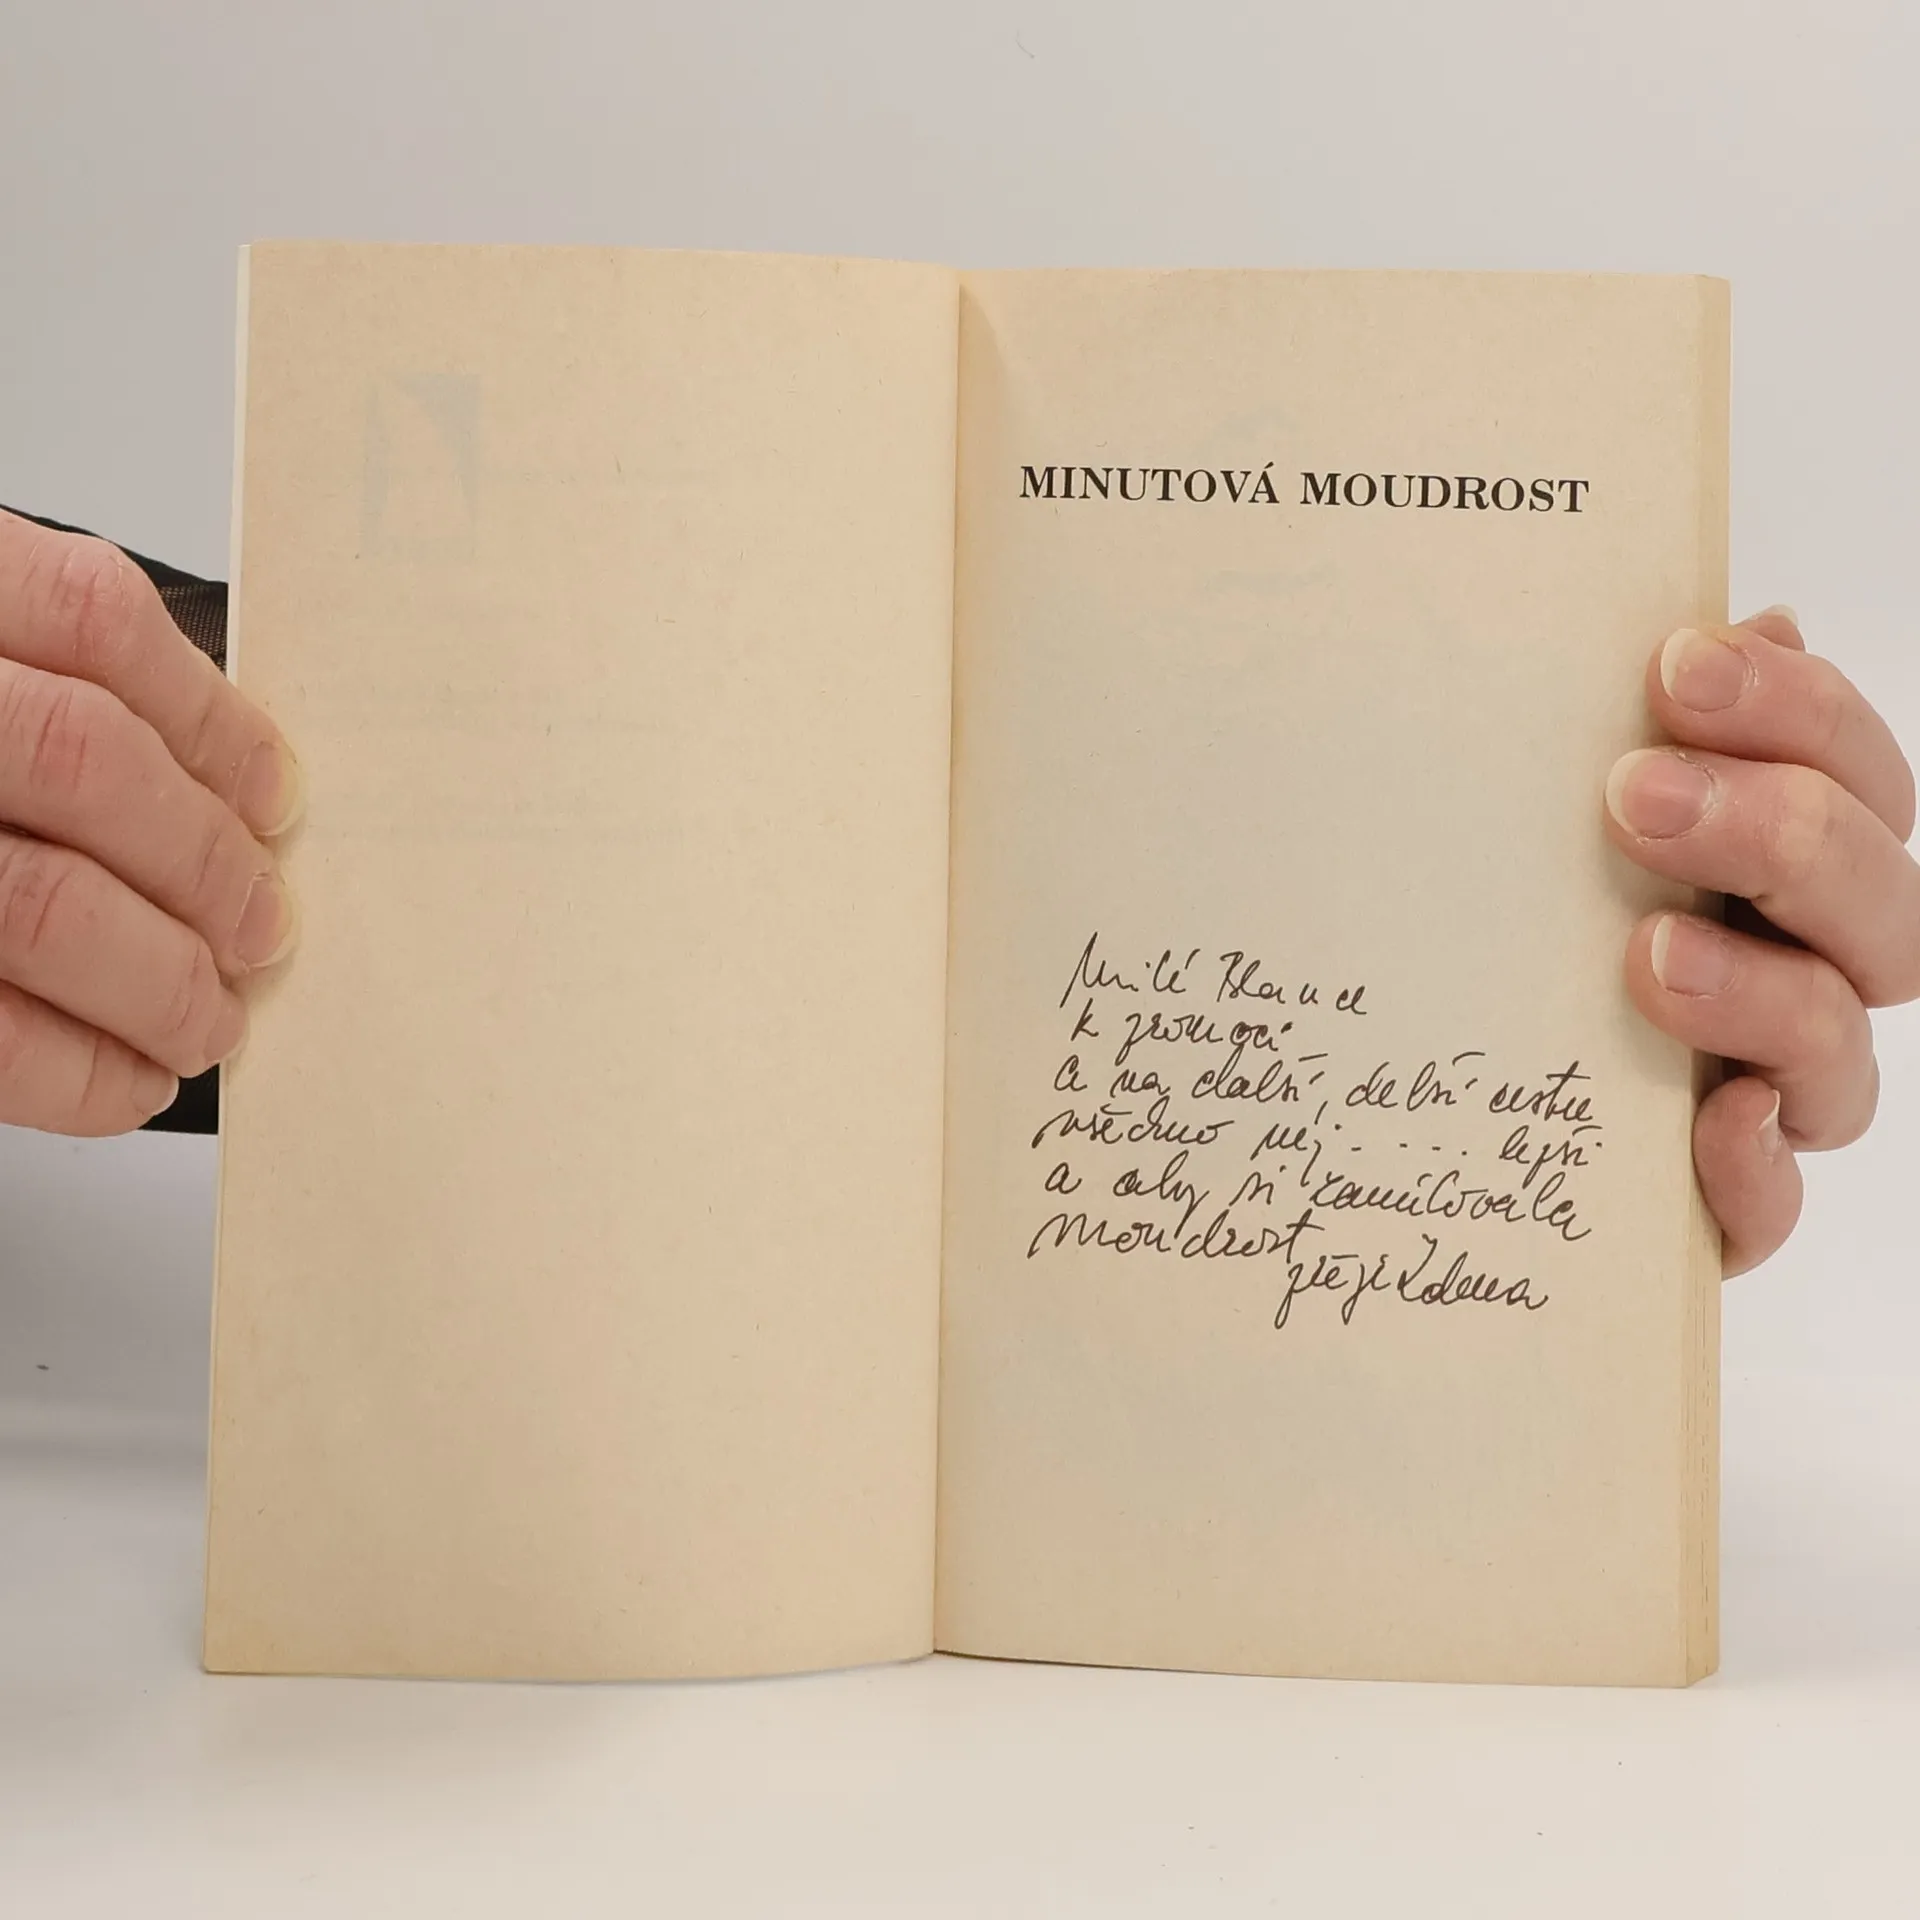 MINUTOVÁ MOUDROST
Milé Blance
k promoci
a na další, delší cestu
všechno nej - - - . lepší
a aby si zamilovala
moudrost
přeje Zdena